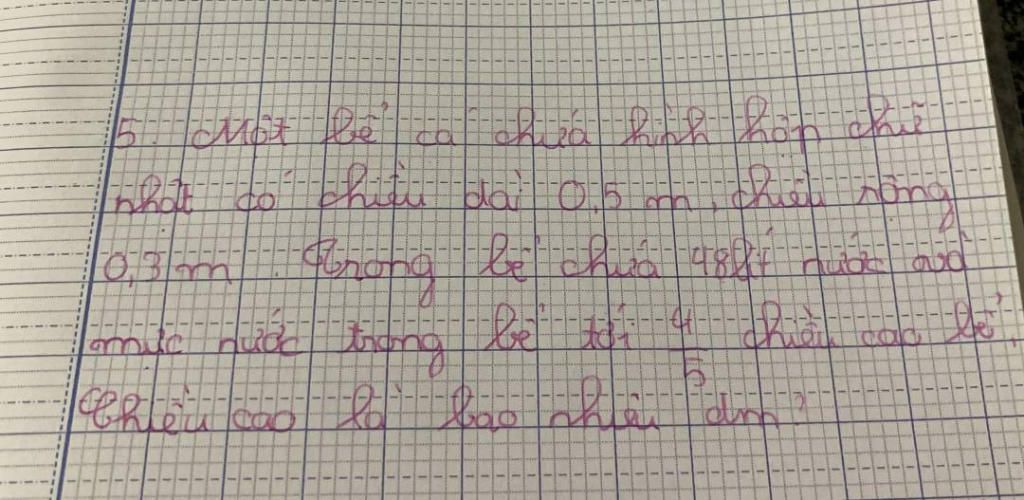 5. Một bể cá chứa hình hôp chữ
nhật có chiều dài 0,5 m, chiều rông
0,3 m. Trong bể chứa 48lít nước mà
mực nước trong bể tới 4/5 chiều cao bể.
Chiều cao là bao nhiêu dm?